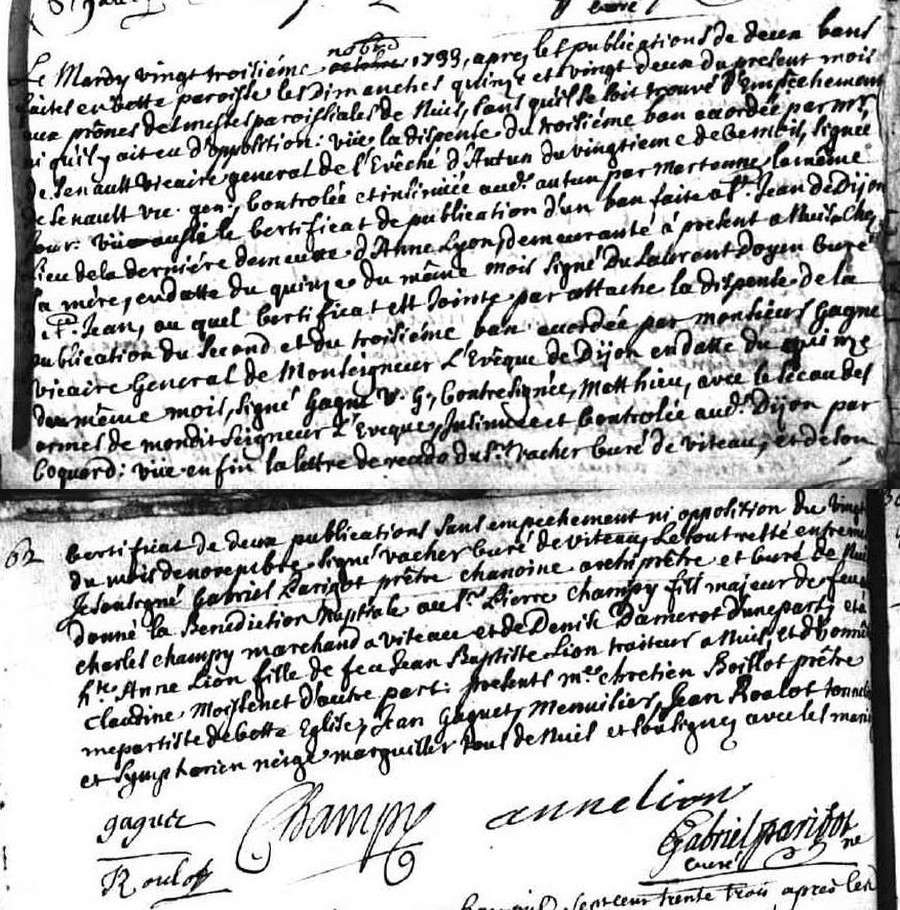 curé
nobre
Le Mardy vingt troisiéme octobre 1733, apres les publications de deux bans
faites en cette paroisse les dimanches quinze et vingt deux du present mois
aux prônes des messes paroissiales de Nuis, sans qu'il se soit trouvé d'Empêchement
ni qu'il y ait eu d'opposition: vüe la dispense du troisiéme ban accordée par mr.
de Senault vicaire general de l'Evêché d'Autun du vingtieme de Cembis, signée
de Senault vic. gen., Controlée et insinuée aud. autun par martenne le même
jour: vüe aussi le Certificat de publication d'un ban faite a St. Jean de Dijon
lieu de la derniére demeure d'Anne Lyon, demeurante à present a Nuis Chez
sa mére, en datte du quinze du même mois signé Du Laborent Doyen Curé
de St. Jean, au quel Certificat est Jointe par attache la dispense de la
publication du second et du troisiéme ban accordée par monsieur Gagne
vicaire General de Monseigneur L'Evêque de Dijon en datte du quinze
du même mois, signé Gagne V. G., Contresignée, Matthieu, avec le sceau des
armes de mondit seigneur L'Eveque, Insinuée et Controlée aud. Dijon par
Coquard: vüe enfin la lettre de recedo du Sr. Vacher Curé de viteau, et de son
62 Certificat de deux publications sans empechement ni opposition du vingt
du mois de novembre signé vacher Curé de viteau, Le tout resté entre mes
Je soussigné Gabriel Parigot prêtre chanoine archiprêtre et Curé de Nuis
donné la Benediction Nuptiale au Sr. Pierre Champy fils majeur de feu
Charles Champy marchand a viteau et de Denise Damerot d'une part; et à
hte. Anne Lion fille de feu Jean Baptiste Lion traiteur a Nuis, et d'honnête
Claudine Moissenet d'autre part: presents mre. Chretien Boillot prêtre
mepartiste de Cette Eglise, Jean Gaguet, Menuisier, Jean Roulot tonnelier
et Symphorien neige marguiller tous de Nuis et soussignez avec les mariés
gaguet Champy anne lion
Roulot Gabriel parigot
curé
sept cent trente trois apres les